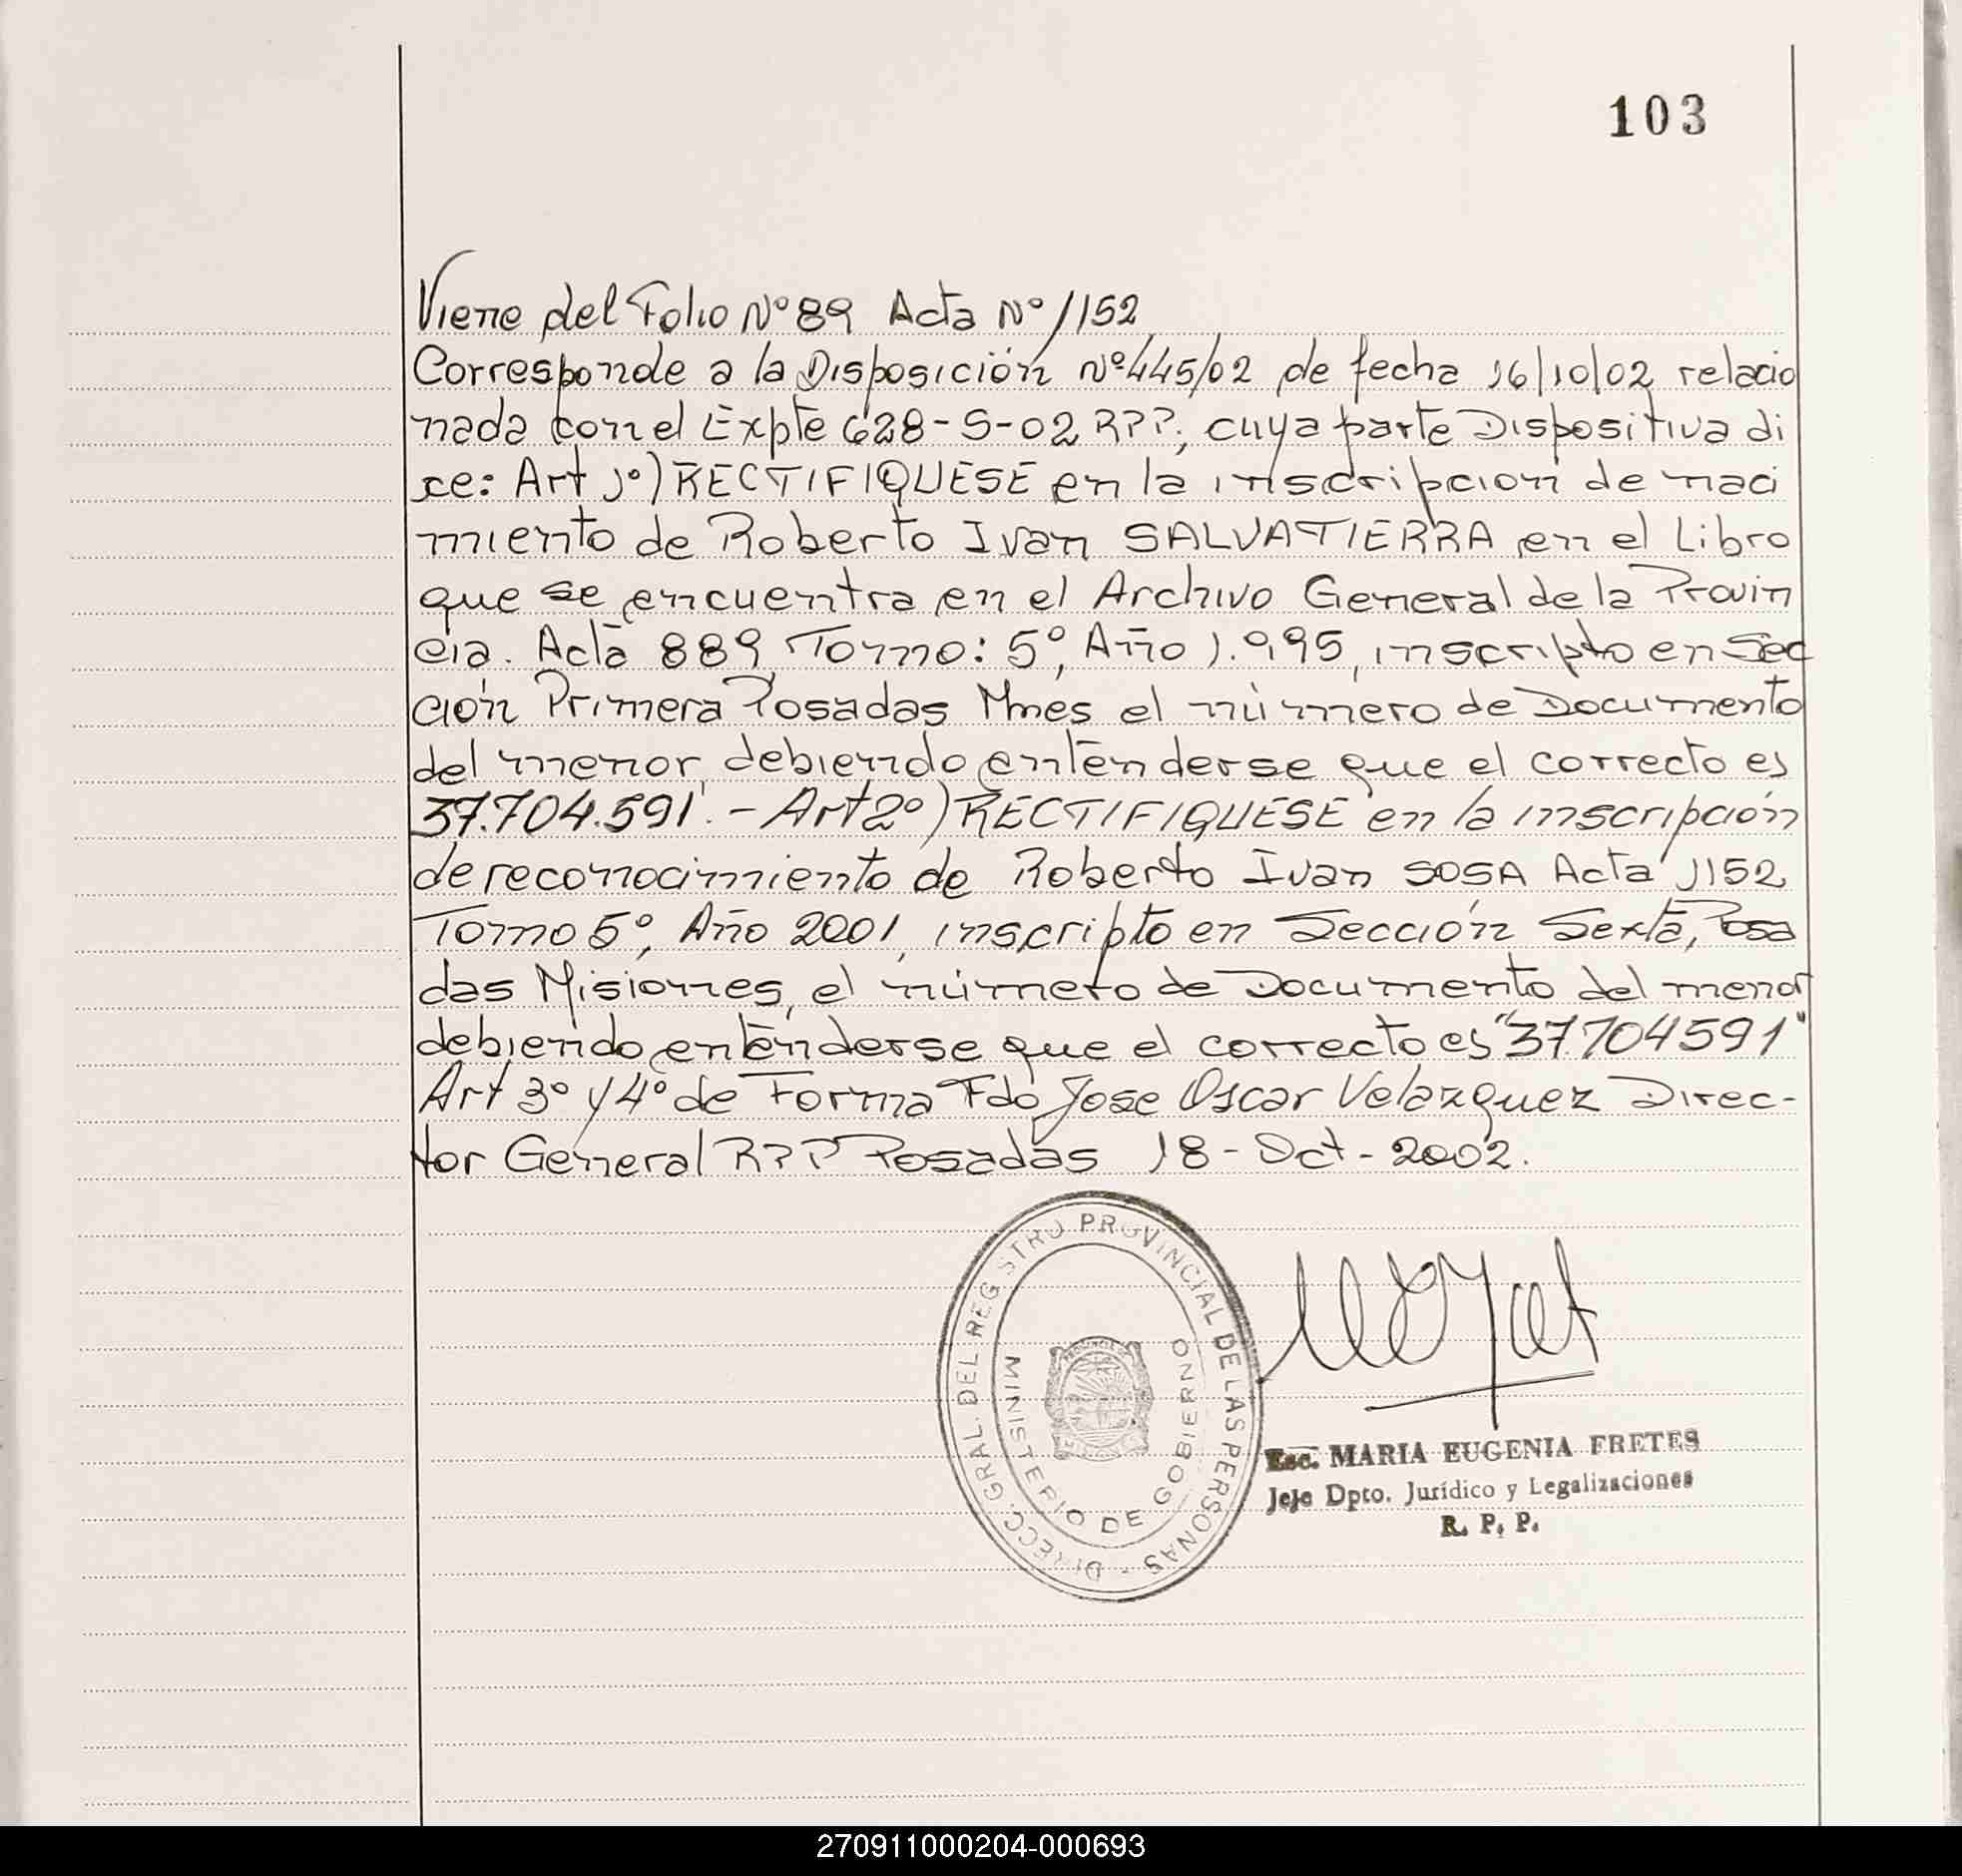 103
Viene del Folio Nº 89 Acta Nº 1152
Corresponde a la Disposición Nº 445/02 de fecha 16/10/02 relacio
nada con el Expte 628-S-02 RPP, cuya parte Dispositiva di
ce: Art 1º) RECTIFIQUESE en la inscripción de naci
miento de Roberto Ivan SALVATIERRA en el Libro
que se encuentra en el Archivo General de la Provin
cia. Acta 889, Tomo: 5º, Año 1.995, inscripto en Sec
ción Primera Posadas Mnes el número de Documento
del menor, debiendo entenderse que el correcto es
37.704.591'. - Art 2º) RECTIFIQUESE en la inscripción
de reconocimiento de Roberto Ivan SOSA Acta 1152
Tomo 5º, Año 2001, inscripto en Sección Sexta, Posa
das Misiones, el número de Documento del menor
debiendo entenderse que el correcto es "37.704591"
Art 3º y 4º de Forma Fdo Jose Oscar Velazquez Direc-
tor General RPP Posadas 18-Oct-2002.
DIRECC. GRAL. DEL REGISTRO PROVINCIAL DE LAS PERSONAS -
MINISTERIO DE GOBIERNO
Esc. MARIA EUGENIA FRETES
Jefe Dpto. Jurídico y Legalizaciones
R. P. P.
270911000204-000693